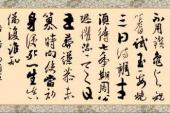 不用鑽龜與祝
蓍試玉要燒
三日滿辨才
須待七年期周公
恐懼流言日
王莽謙恭未
篡時向使當初
身便死一生真
偽復誰知